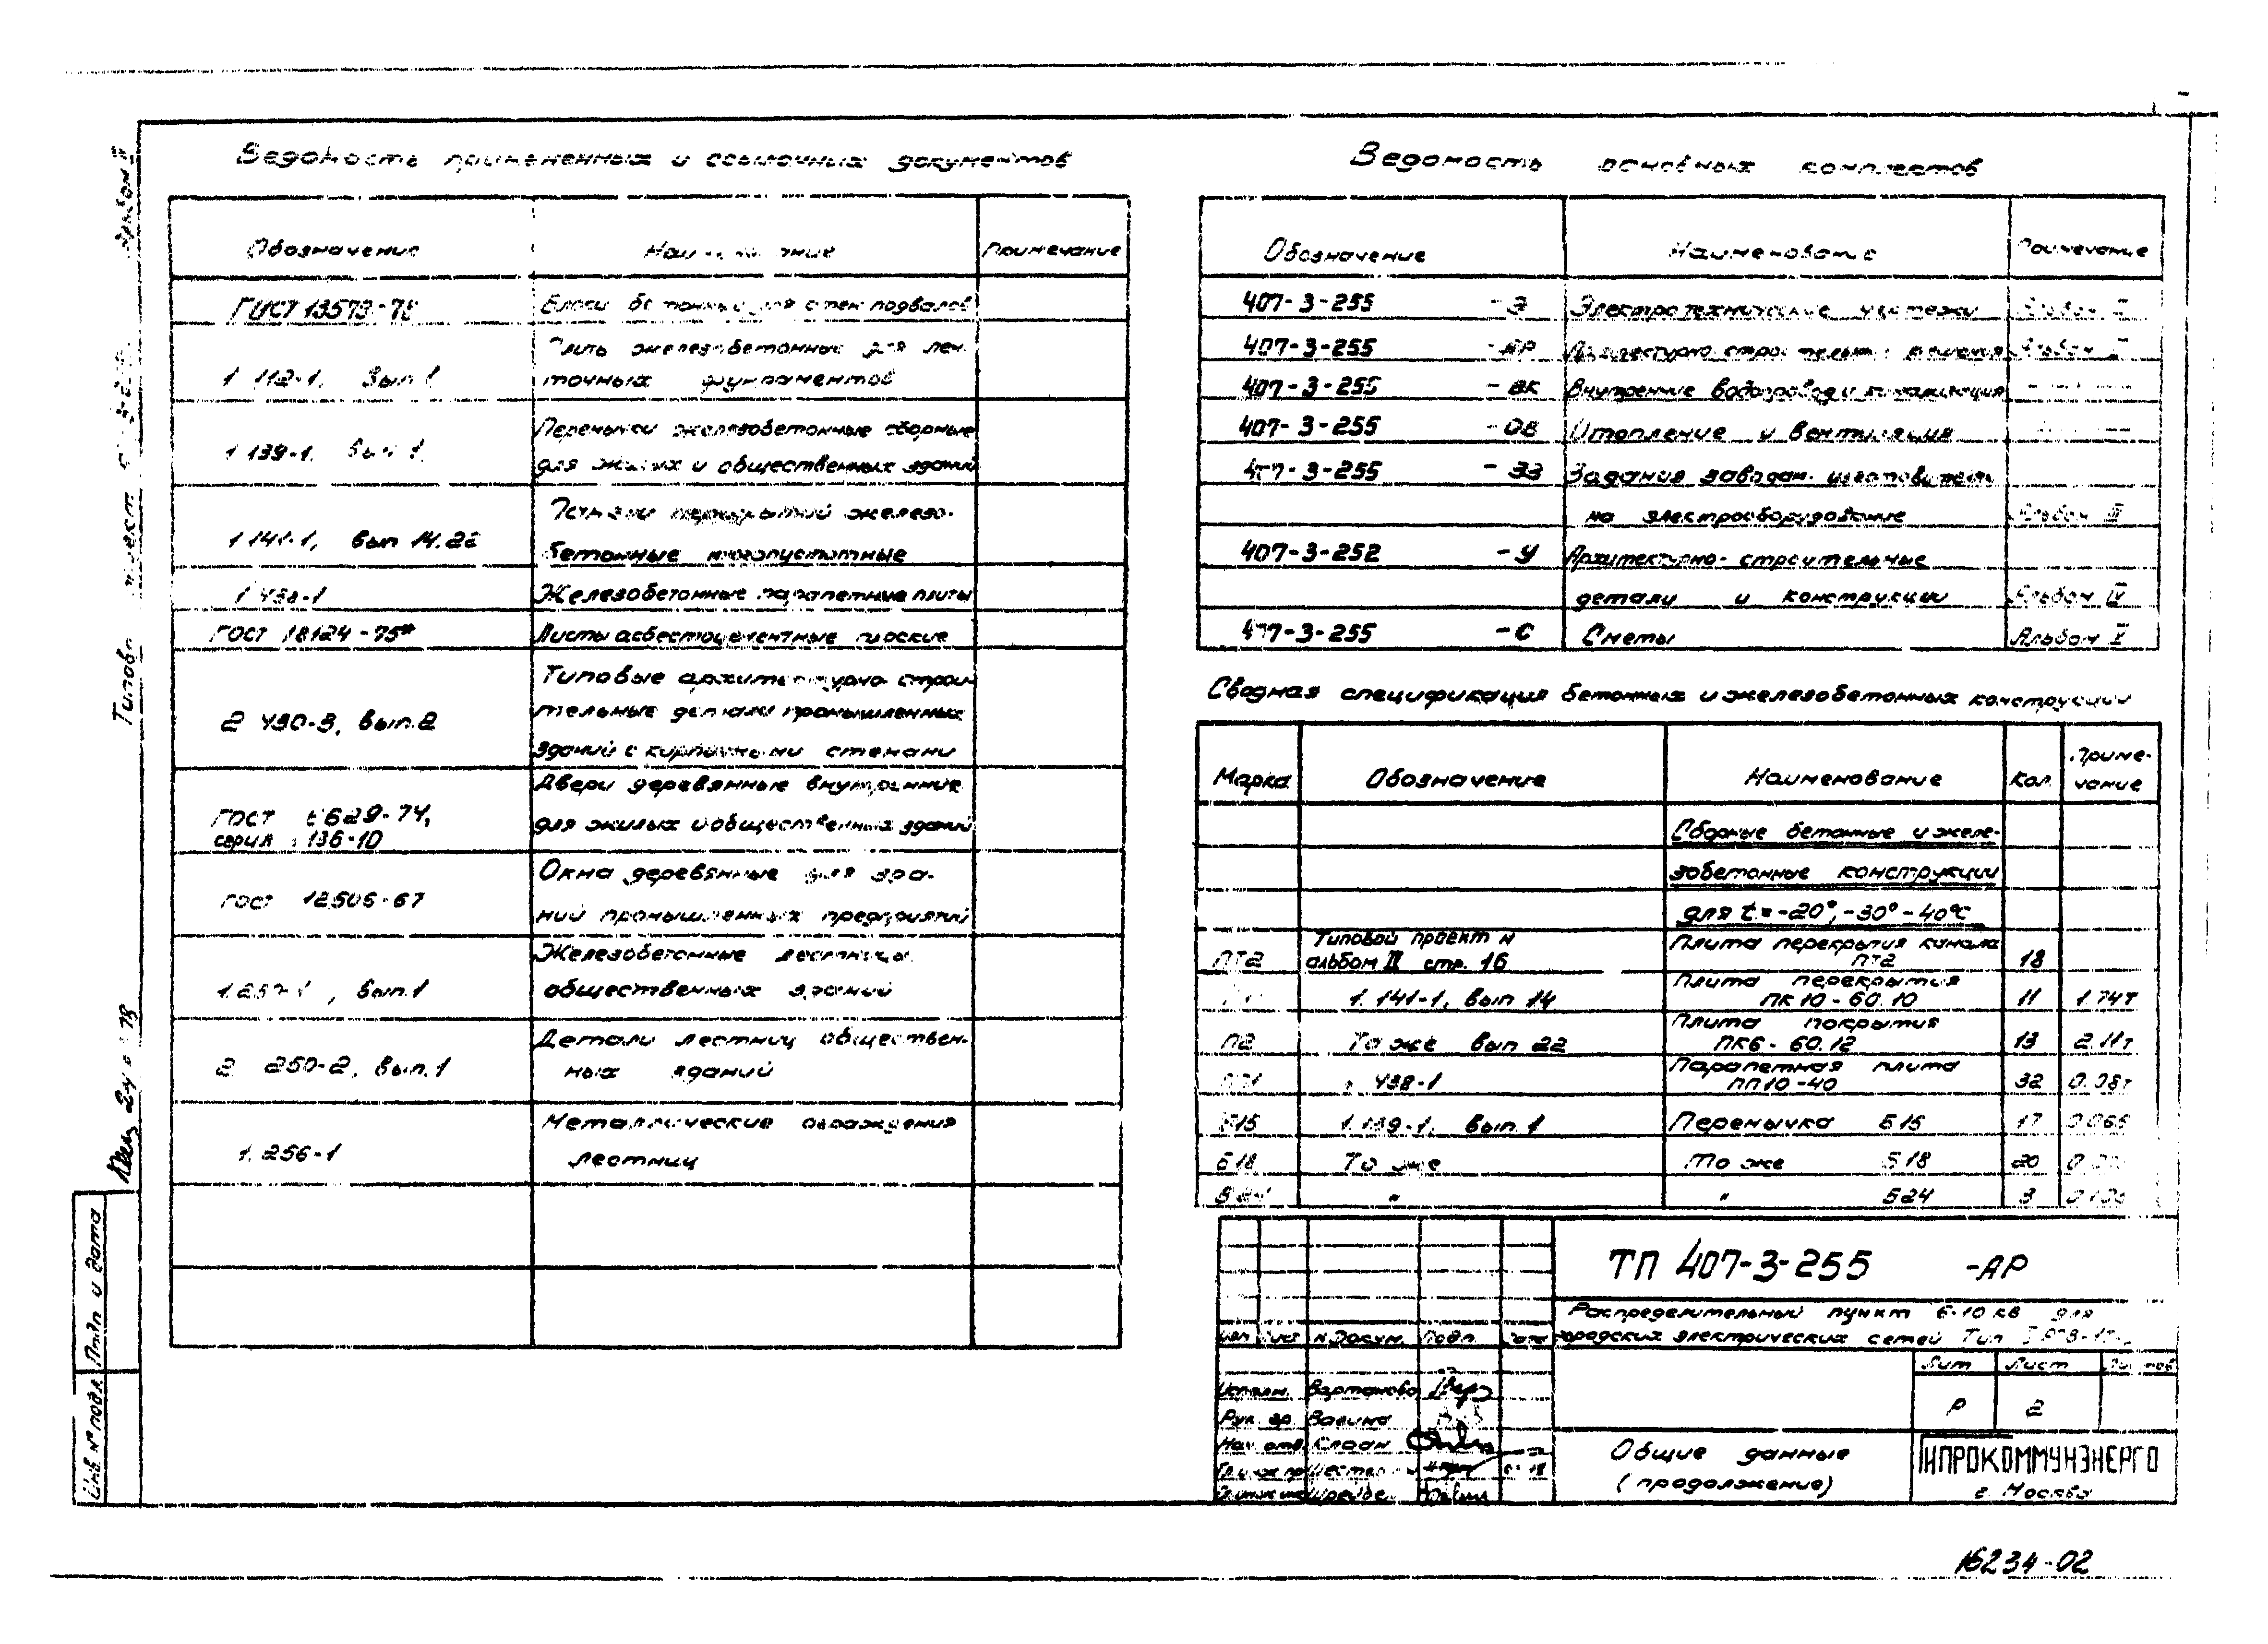 Ведомость примененных и ссылочных документов
Обозначение
Примечание
ГОСТ 13579-78
бетонные для стен подвалов
железобетонные для лен-
1.112-1, Вып.1
точных фундаментов
Перемычки железобетонные сборные
1.139-1, Вып.1
для жилых и общественных зданий
перекрытий железо-
1.141-1, вып 14.22
бетонные многопустотные
1.438-1
Железобетонные парапетные плиты
ГОСТ 18124-75*
Листы асбестоцементные плоские
Типовые архитектурно строи-
тельные детали промышленных
2.430-3, вып.2
зданий с кирпичными стенами
Двери деревянные внутренние
ГОСТ 6629-74,
серия 1.136-10
для жилых и общественных зданий
Окна деревянные для зда-
ГОСТ 12506-67
ний промышленных предприятий
Железобетонные лестницы
, вып.1
общественных зданий
Детали лестниц обществен-
2. 250-2, вып.1
ных зданий
Металлические ограждения
1. 256-1
лестниц
Ведомость основных комплектов
Обозначение
Наименование
Примечание
407-3-255 -Э
Электротехнические чертежи
Альбом I
407-3-255 -АР
Архитектурно строительн. решения
Альбом
407-3-255 -ВК
Внутренние водопровод и канализация
407-3-255 -ОВ
Отопление и вентиляция
407-3-255 -ЗЗ
Задания заводам изготовителям
на электрооборудование
Альбом III
407-3-252 -У
Архитектурно-строительные
детали и конструкции
Альбом IV
407-3-255 -С
Сметы
Альбом V
Сводная спецификация бетонных и железобетонных конструкций
Марка
Обозначение
Наименование
Кол.
Приме-
чание
Сборные бетонные и желе-
зобетонные конструкции
для t=-20°,-30°-40°С
ПТ2
Типовой проект н
альбом IV стр. 16
Плита перекрытия канала
ПТ2
18
1.141-1, вып 14
Плита перекрытия
ПК10-60.10
11
1.74т
П2
То же вып 22
Плита покрытия
ПК6-60.12
13
2.11т
ПП1
438-1
Парапетная плита
ПП10-40
32
0.08т
Б15
1.139-1, вып.1
Перемычка Б15
17
0.065
Б18
То же
То же Б18
20
Б24
"
" Б24
3
ТП 407-3-255 -АР
Распределительный пункт 6-10 кв для
городских электрических сетей Тип
Изм Лист N Докум. Подп. Дата
Лит Лист Листов
Р 2
Исполн. Вартанова
Рук. гр. Вагина
Нач отд.
Общие данные
(продолжение)
ГИПРОКОММУНЭНЕРГО
г. Москва
16234-02
Альбом II
Подп и дата
Инв № подл.